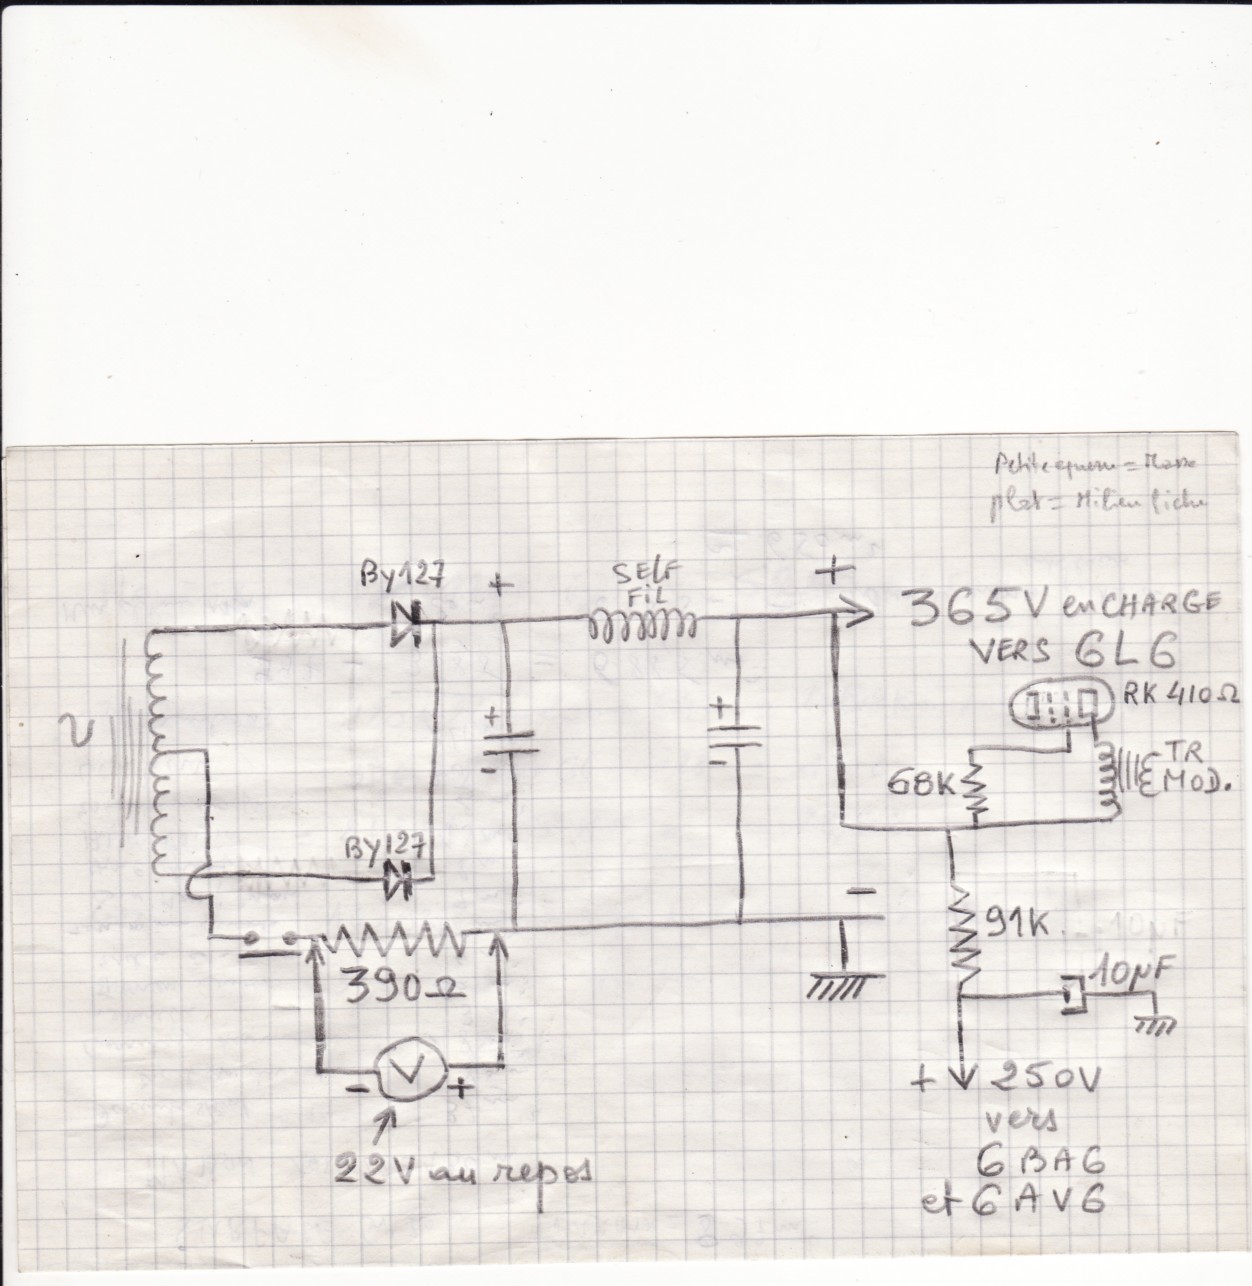 Petite equerre = Masse
plot = Milieu fiche
By127
+
SELF
FIL
+
365V en CHARGE
VERS 6L6
RK 410Ω
+
-
+
-
68K
TR
MOD.
BY127
-
91K
390Ω
10µF
V
- +
+ 250V
vers
6BA6
et 6AV6
22V au repos